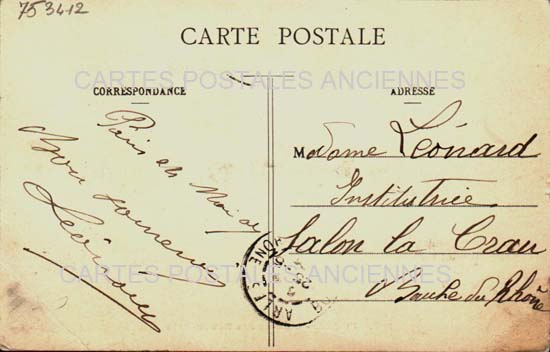 753412
CARTE POSTALE
CARTES POSTALES ANCIENNES
CORRESPONDANCE
ADRESSE
Paris
Bon souvenir
Léonard
Madame Léonard
Institutrice
Salon la Crau
Bouche du Rhône
CARTES POSTALES ANCIENNES
ARLES
RHÔNE